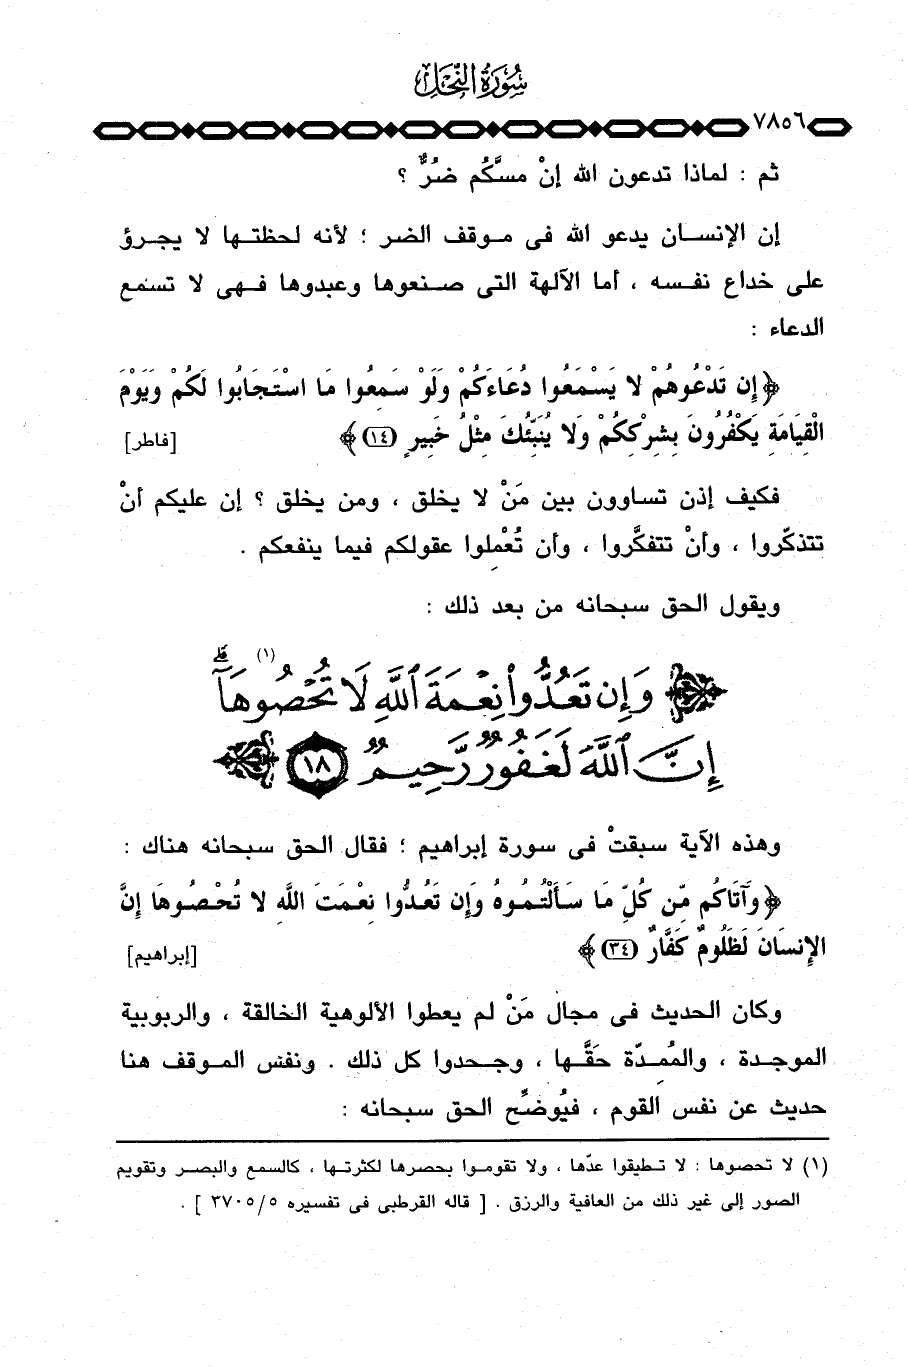 سُورَةُ النَّحْلِ
٧٨٥٦
ثم : لماذا تدعون الله إنْ مسَّكُم ضُرٌّ ؟
إن الإنسان يدعو الله فى موقف الضر ؛ لأنه لحظتها لا يجرؤ
على خداع نفسه ، أما الآلهة التى صنعوها وعبدوها فهى لا تسمع
الدعاء :
﴿إِن تَدْعُوهُمْ لا يَسْمَعُوا دُعَاءَكُمْ وَلَوْ سَمِعُوا مَا اسْتَجَابُوا لَكُمْ وَيَوْمَ
الْقِيَامَةِ يَكْفُرُونَ بِشِرْكِكُمْ وَلا يُنَبِّئُكَ مِثْلُ خَبِيرٍ (١٤)﴾ [فاطر]
فكيف إذن تساوون بين مَنْ لا يخلق ، ومن يخلق ؟ إن عليكم أنْ
تتذكّروا ، وأنْ تتفكَّروا ، وأن تُعْملوا عقولكم فيما ينفعكم .
ويقول الحق سبحانه من بعد ذلك :
وَإِن تَعُدُّوا۟ نِعْمَةَ ٱللَّهِ لَا تُحْصُوهَآ ۗ (١)
إِنَّ ٱللَّهَ لَغَفُورٌ رَّحِيمٌ ١٨
وهذه الآية سبقتْ فى سورة إبراهيم ؛ فقال الحق سبحانه هناك :
﴿وَآتَاكُم مِّن كُلِّ مَا سَأَلْتُمُوهُ وَإِن تَعُدُّوا نِعْمَتَ اللَّهِ لا تُحْصُوهَا إِنَّ
الإِنسَانَ لَظَلُومٌ كَفَّارٌ (٣٤)﴾ [إبراهيم]
وكان الحديث فى مجال مَنْ لم يعطوا الألوهية الخالقة ، والربوبية
الموجدة ، والمُمدّة حَقَّها ، وجحدوا كل ذلك . ونفس الموقف هنا
حديث عن نفس القوم ، فيُوضِّح الحق سبحانه :
(١) لا تحصوها : لا تطيقوا عدّها ، ولا تقوموا بحصرها لكثرتها ، كالسمع والبصر وتقويم
الصور إلى غير ذلك من العافية والرزق . [ قاله القرطبى فى تفسيره ٣٧٠٥/٥ ] .